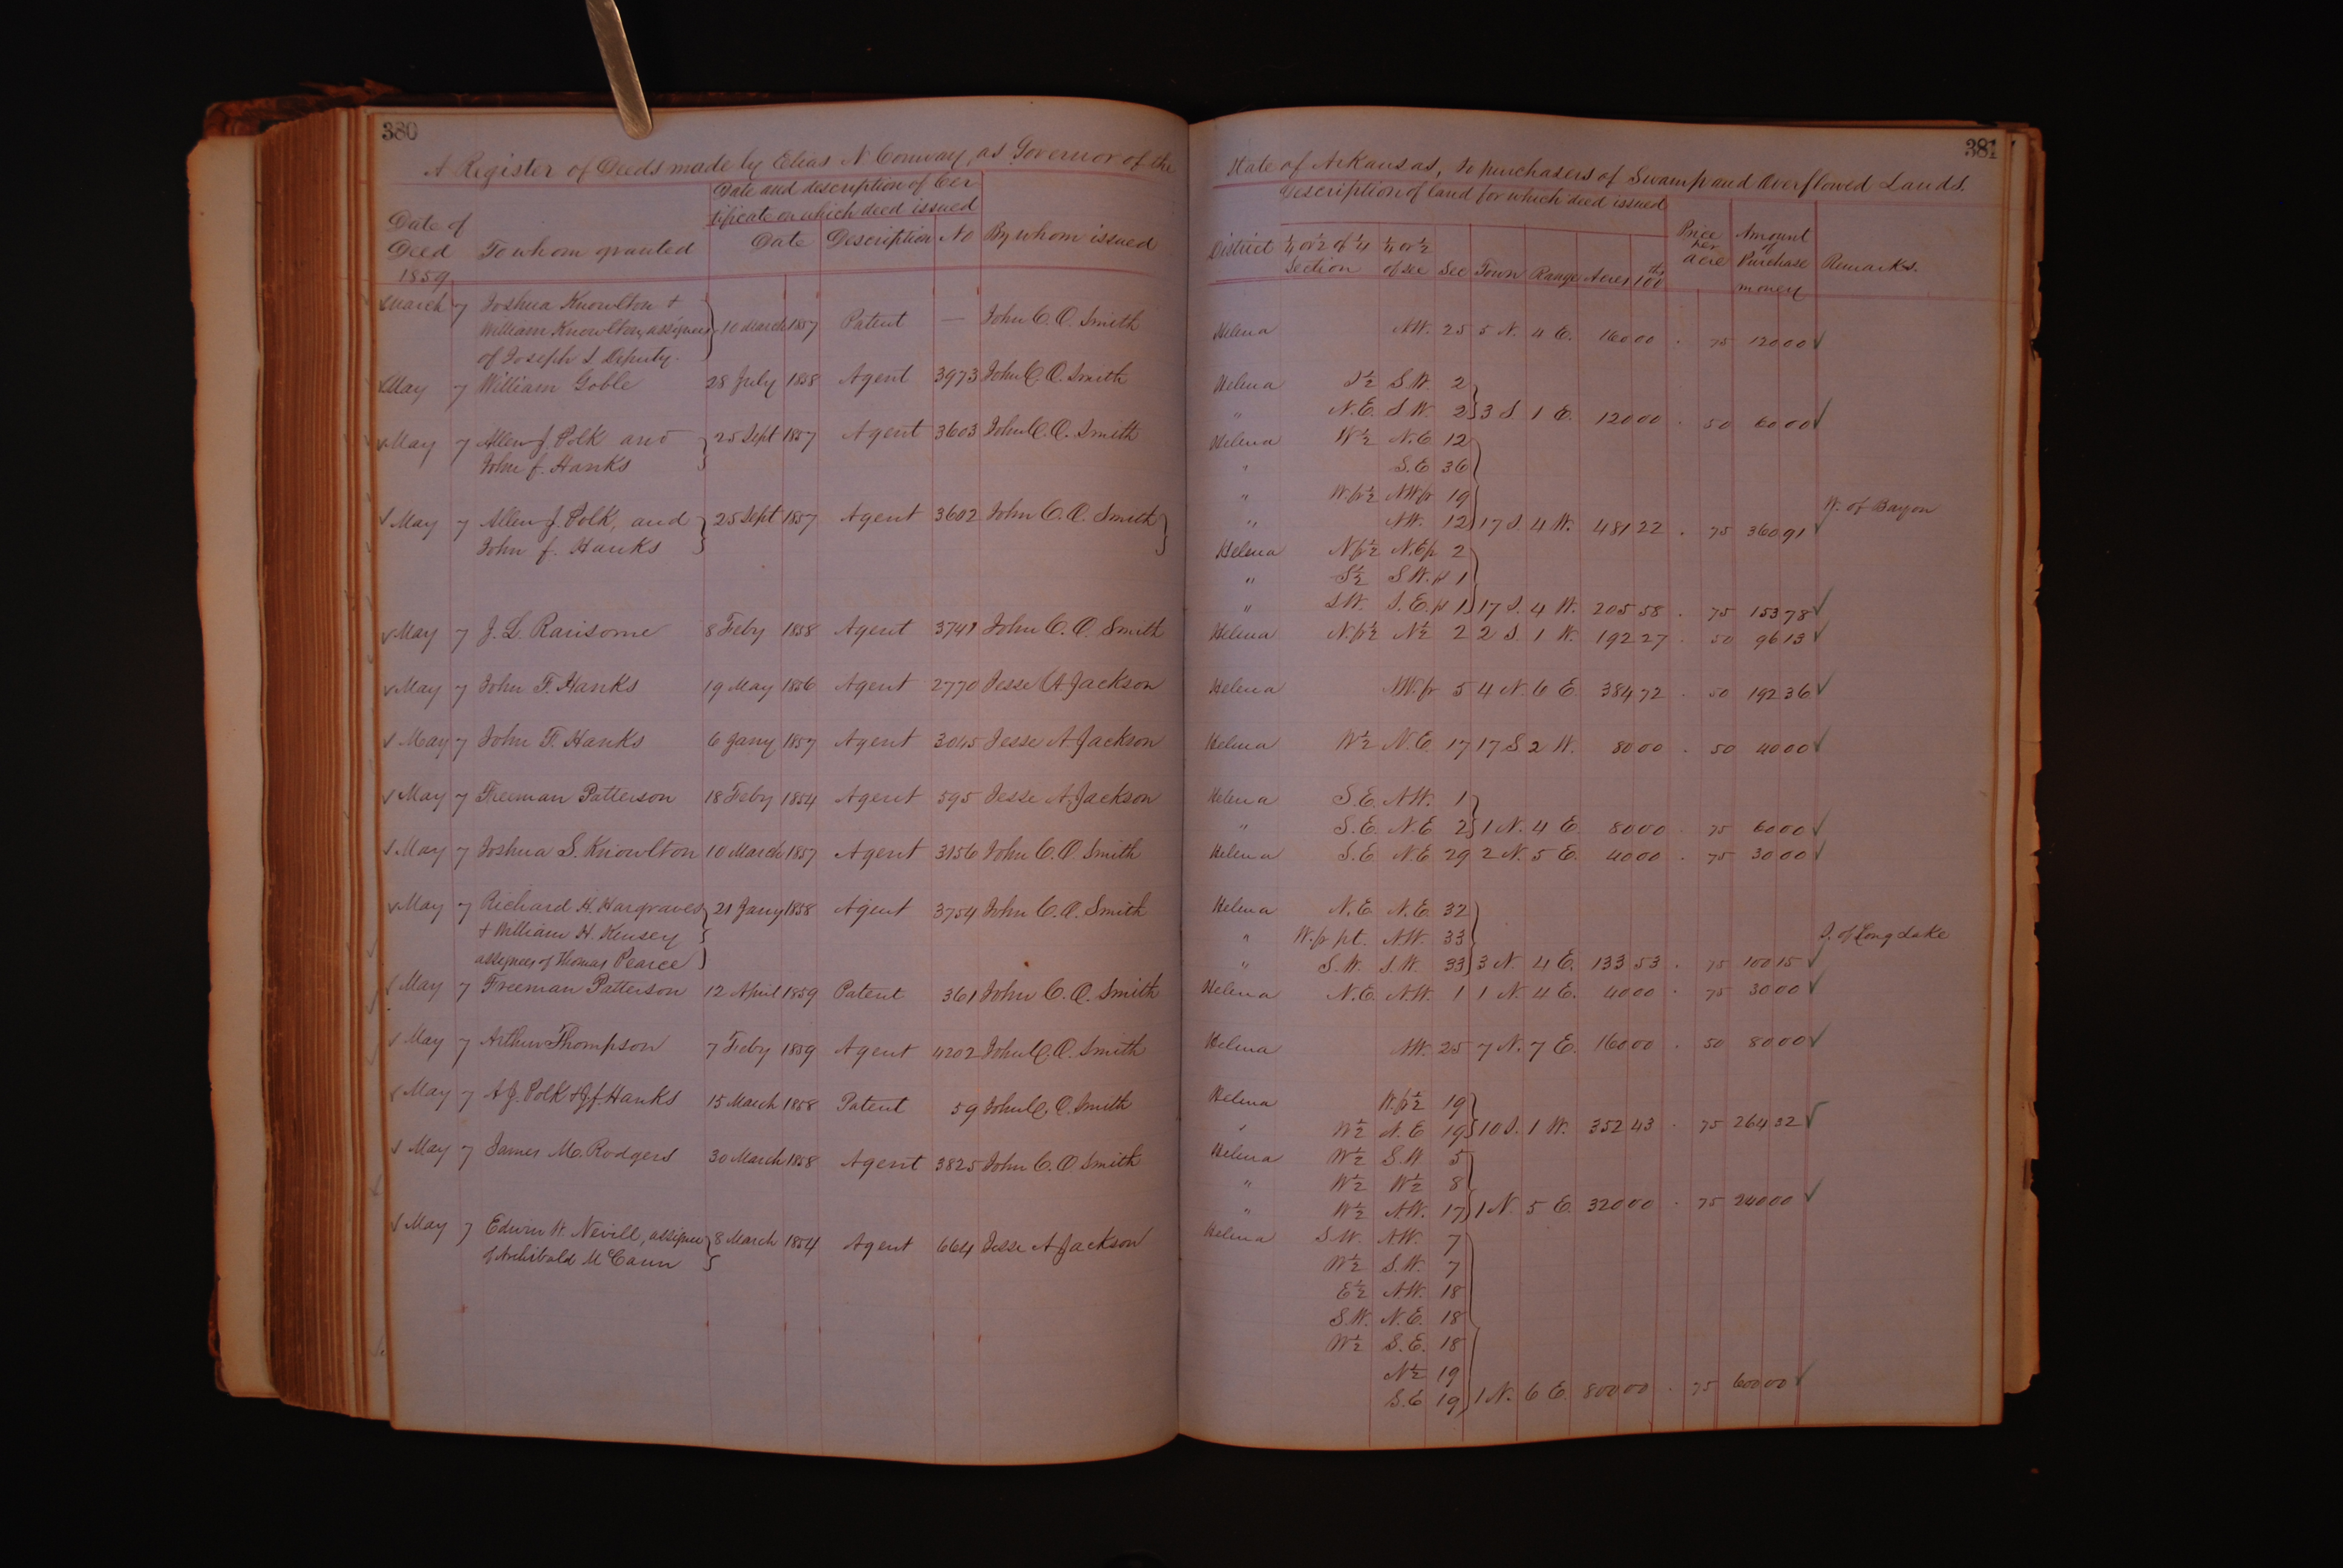 380
A Register of Deeds made by Elias N. Conway, as Governor of the
Date and description of Cer
tificate on which deed issued
Date of
Deed To whom granted Date Description No By whom issued
1859
March 7 Joshua Knowlton +
William Knowlton, assignees 10 March 1857 Patent — John C. O. Smith
of Joseph S Deputy.
May 7 William Goble 28 July 1858 Agent 3973 John C. O. Smith
May 7 Allen J. Polk and 25 Sept 1857 Agent 3603 John C. O. Smith
John f. Hanks
May 7 Allen J. Polk, and 25 Sept 1857 Agent 3602 John C. O. Smith
John f. Hanks
May 7 J. L. Ransome 8 Feby 1858 Agent 3741 John C. O. Smith
May 7 John F. Hanks 19 May 1856 Agent 2770 Jesse A Jackson
May 7 John F. Hanks 6 Jany 1857 Agent 3045 Jesse A Jackson
May 7 Freeman Patterson 18 Feby 1854 Agent 595 Jesse A. Jackson
May 7 Joshua S. Knowlton 10 March 1857 Agent 3156 John C. O. Smith
May 7 Richard H. Hargraves 21 Jany 1858 Agent 3754 John C. O. Smith
+ William H. Kensey
assignees of Thomas Pearce
May 7 Freeman Patterson 12 April 1859 Patent 361 John C. O. Smith
May 7 Arthur Thompson 7 Feby 1859 Agent 4202 John C. O. Smith
May 7 A J. Polk + J f Hanks 15 March 1858 Patent 59 John C. O. Smith
May 7 James M. Rodgers 30 March 1858 Agent 3825 John C. O. Smith
May 7 Edwin W. Nevill, assignee 8 March 1854 Agent 664 Jesse A Jackson
of Archibald McCann
381
State of Arkansas, to purchasers of Swamp and Overflowed Lands.
Description of land for which deed issued
District ¼ or ½ of ¼ ¼ or ½ Price per acre Amount of Purchase money
Section of sec Sec Town Range Acres 100ths Remarks.
Helena N.W. 25 5 N. 4 E. 160 00 . 75 120 00
Helena S½ S.W. 2
" N.E. S.W. 2 3 S 1 E. 120 00 . 50 60 00
Helena W½ N.E 12
" S.E 36
" W.fr½ NWfr 19
" N.W. 12 17 S. 4 W. 481 22 . 75 360 91 W. of Bayou
Helena N fr½ N.E fr 2
" S½ S.W. fr 1
" S.W. S.E. fr 1 17 S. 4 W. 205 58 . 75 153 78
Helena N.fr½ N½ 2 2 S. 1 W. 192 27 . 50 96 13
Helena N.W. fr 5 4 N. 6 E 384 72 . 50 192 36
Helena W½ N.E. 17 17 S 2 W. 80 00 . 50 40 00
Helena S.E. N.W. 1
" S.E. N.E 2 1 N. 4 E 80 00 . 75 60 00
Helena S.E N.E 29 2 N. 5 E. 40 00 . 75 30 00
Helena N.E N.E. 32
" W.fr pt. N.W. 33 S. of Long Lake
" S.W. S.W. 33 3 N. 4 E. 133 53 . 75 100 15
Helena N.E. N.W. 1 1 N. 4 E. 40 00 . 75 30 00
Helena N.W. 25 7 N. 7 E. 160 00 . 50 80 00
Helena W.fr½ 19
" W½ N.E 19 10 S. 1 W. 352 43 . 75 264 32
Helena W½ S.W 5
" W½ W½ 8
" W½ N.W. 17 1 N. 5 E. 320 00 . 75 240 00
Helena S.W. N.W. 7
W½ S.W. 7
E½ N.W. 18
S.W. N.E. 18
W½ S.E. 18
N½ 19
S.E 19 1 N. 6 E. 800 00 . 75 600 00